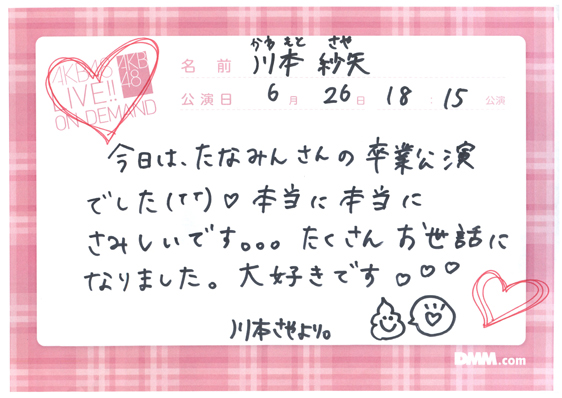 AKB48
LIVE!!
ON DEMAND
AKB
48
かわ もと さや
名前 川本 紗矢
公演日 6月 26日 18:15 公演
今日は、たなみんさんの卒業公演
でした(TT)♡ 本当に本当に
さみしいです。。。たくさんお世話に
なりました。大好きです♡♡♡
川本さやより。
DMM.com